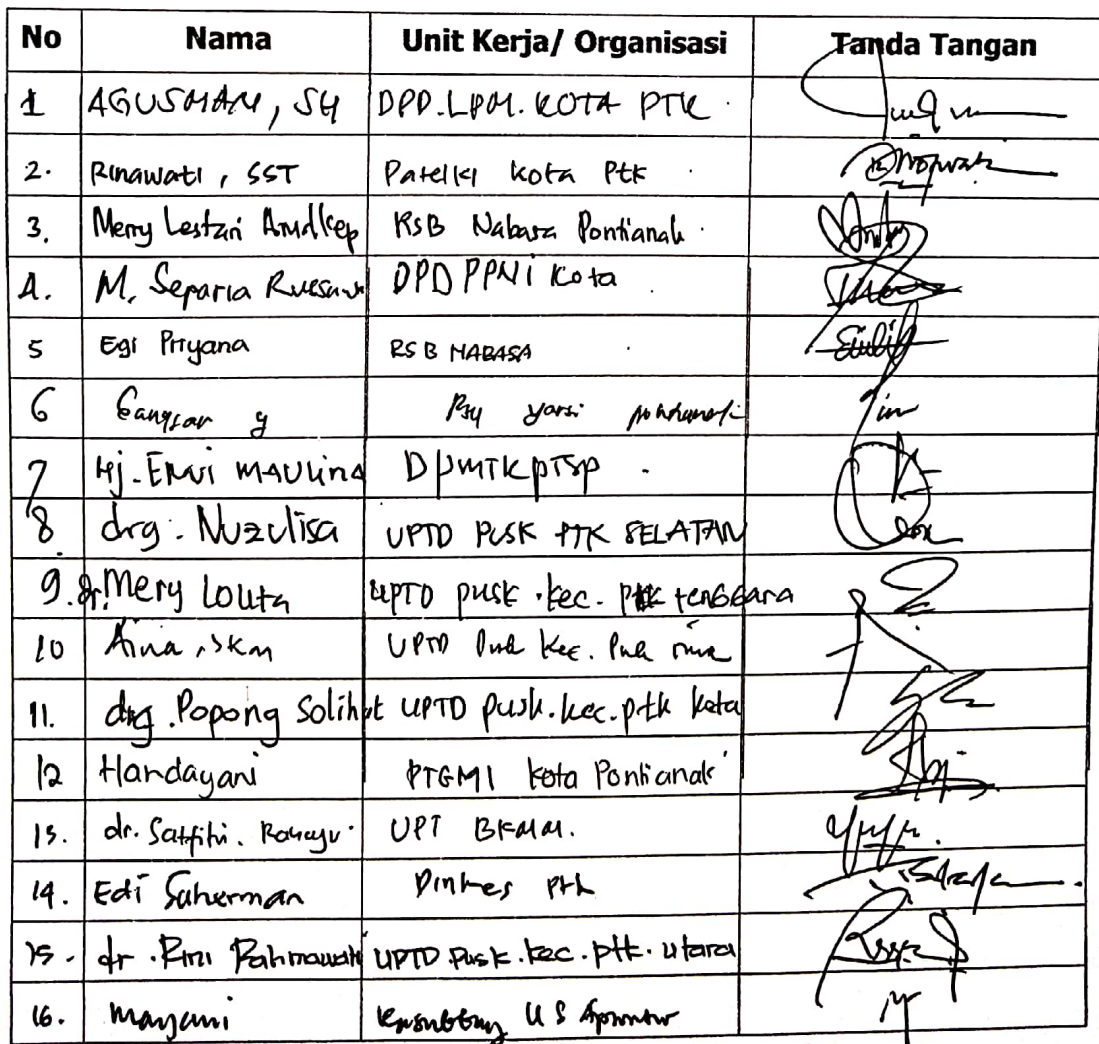 No Nama Unit Kerja/ Organisasi Tanda Tangan
1 AGUSMAN, SH DPD.LPM.KOTA PTK
2. Rinawati, SST Patelki kota Ptk
3. Merry Lestari Amdkep RSB Nabasa Pontianak
4. M. Separia DPD PPNI Kota
5 Egi Priyana RSB NABASA
6 Rsu yarsi
7 Hj. Ervi MAULINA DPMTKPTSP
8. drg. Nuzulisa UPTD PUSK PTK SELATAN
9. dr. Mery Louta UPTD pusk.kec. ptk tenggara
10 Aina, SKM UPTD Kec.
11. drg. Popong Solihat UPTD pusk.kec.ptk kota
12 Handayani PTGMI kota Pontianak
13. dr. Rahayu UPT BKMM.
14. Edi Suherman Dinkes ptk
15. dr. Rini Rahmawati UPTD Pusk.kec.ptk.utara
16. Maryani